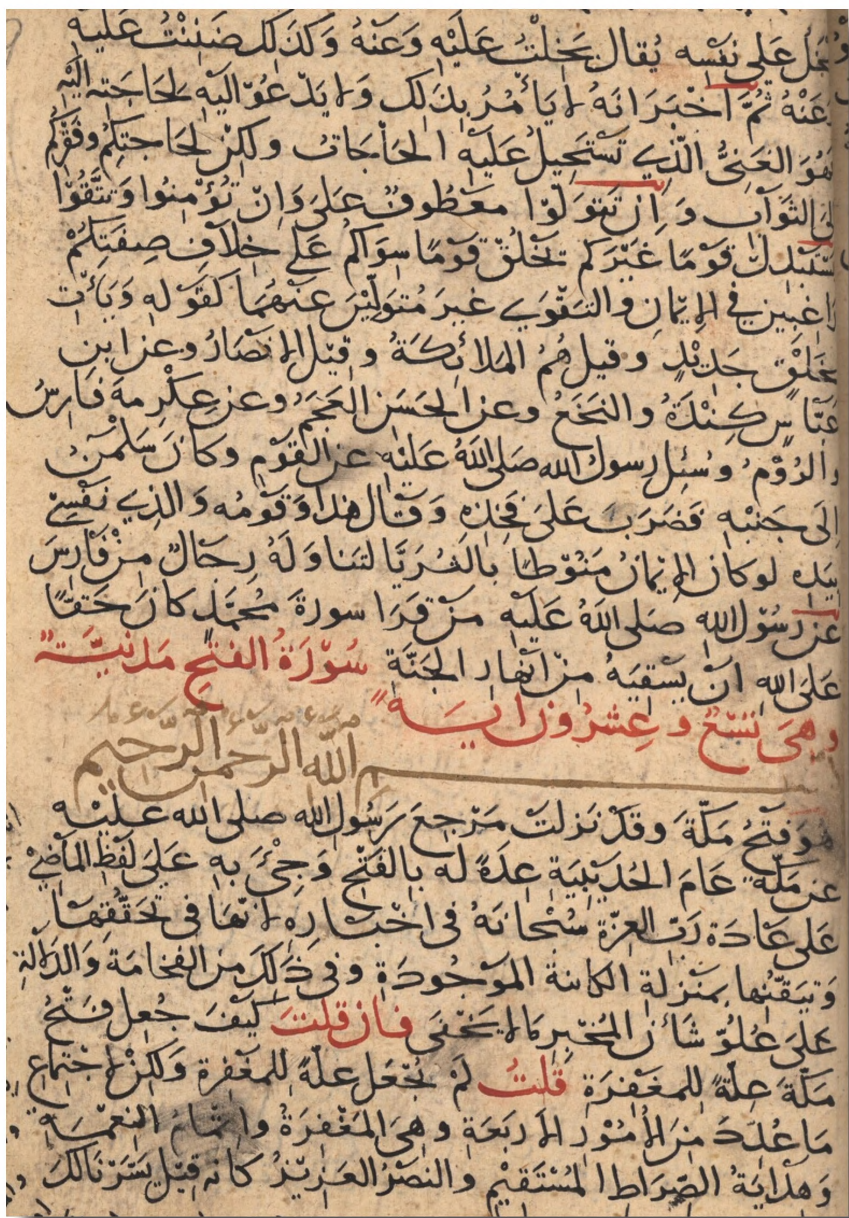 بخل على نفسه يقال بَخِلْتُ عَلَيْهِ وَعَنْهُ وَكَذلِك ضَنِنْتُ عَليْه
وَعَنْهُ ثُمَّ اَخْبَرَ انَهُ لا يَأمُرُ بذلك وَلا يَدْعُوْ اليْه لحَاجَتِه اليْه
فَهُوَ الغَنِيُّ الّذِي تَسْتَحِيلُ عَليْهِ الحَاجَاتُ ولكِنْ لحَاجتِكُمْ وفَقْرِكُمْ
الى الثوَاب وَاِنْ تَتَوَلّوْا معَطُوفٌ عَلى وَاِنْ تُؤْمِنُوا وَتَتَّقُوْا
يَسْتَبْدِلْ قَوْمًا غَيْرَكم يَخْلُقْ قَوْمًا سِوَاكُمْ عَلى خِلافِ صِفَتِكُمْ
رَاغبين في الإيمَانِ والتَقْوى غيرَ مُتوَلّيْنَ عَنْهُمَا كقَوْله وَيَأتِ
بخَلْقٍ جَدِيْدٍ وقيل هُمُ المَلائِكَةُ وقِيْلَ الانصَارُ وعن ابن
عَبّاسٍ كِنْدَةُ والنخَعُ وعن الحَسَن العَجَمُ وعن عِكْرِمةَ فَارِسُ
والرُوْمُ وسُئِل رسول الله صَلى اللهُ عَليْه عن القَوْم وكانَ سَلْمٰنُ
اِلى جَنْبِهِ فَضرَبَ عَلى فَخِذِهِ وَقَال هٰذا وَقَوْمُه وَالذِي نَفْسِيْ
بيَدِه لو كان الإيمَانُ مَنُوْطًا بالثُرَيَّا لتَنَاوَلَهُ رِجَالٌ مِنْ فَارِسَ
عَن رَسُوْل الله صَلى اللهُ عَليْه مَنْ قرَا سورةَ مُحمَّدٍ كانَ حَقًّا
عَلَى اللهِ انْ يَسْقيَهُ مِنْ انْهَار الجَنَّة سُوْرَةُ الفتْحِ مَدَنيَّةٌ
وهِيَ تِسْعٌ وعِشرُونَ ايَةً
بسم اللهِ الرَّحْمٰنِ الرَّحِيمِ
هُوَ فَتْحُ مَكّةَ وقَدْ نَزلتْ مَرْجِعَ رَسُوْلِ الله صلى الله عليْه
عن مَكّةَ عَامَ الحُدَيْبيَة عِدَةً له بالفَتْح وَجِيْءَ بِه عَلى لفْظِ المَاضِيْ
عَلى عَادَة رَبّ العِزّة سُبْحَانَهُ في اخْبَاره لانّهَا في تَحَقُّقِهَا
وَتَيَقُّنِها بِمَنْزلة الكائنة المَوْجُودَة وفي ذلكَ من الفَخامَة وَالدلالة
عَلى عُلُوّ شَأن المُخْبِر مَا لا يَخْفَى فان قلتَ كيْفَ جُعِل فَتْحُ
مَكّةَ عِلّةً للمَغْفِرَة قُلتُ لَمْ يُجْعَل عِلّةً للمَغْفِرة وَلكِنْ لاجْتِماع
مَا عُدِّدَ مِنَ الأمُوْر الأرْبَعَةِ وهِيَ المَغْفِرَةُ واتمَامُ النعْمَةِ
وَهْدَايَةُ الصِّرَاط المُسْتَقيْم والنصْرُ العَزيزُ كانه قِيْلَ يَسَّرْنَا لكَ